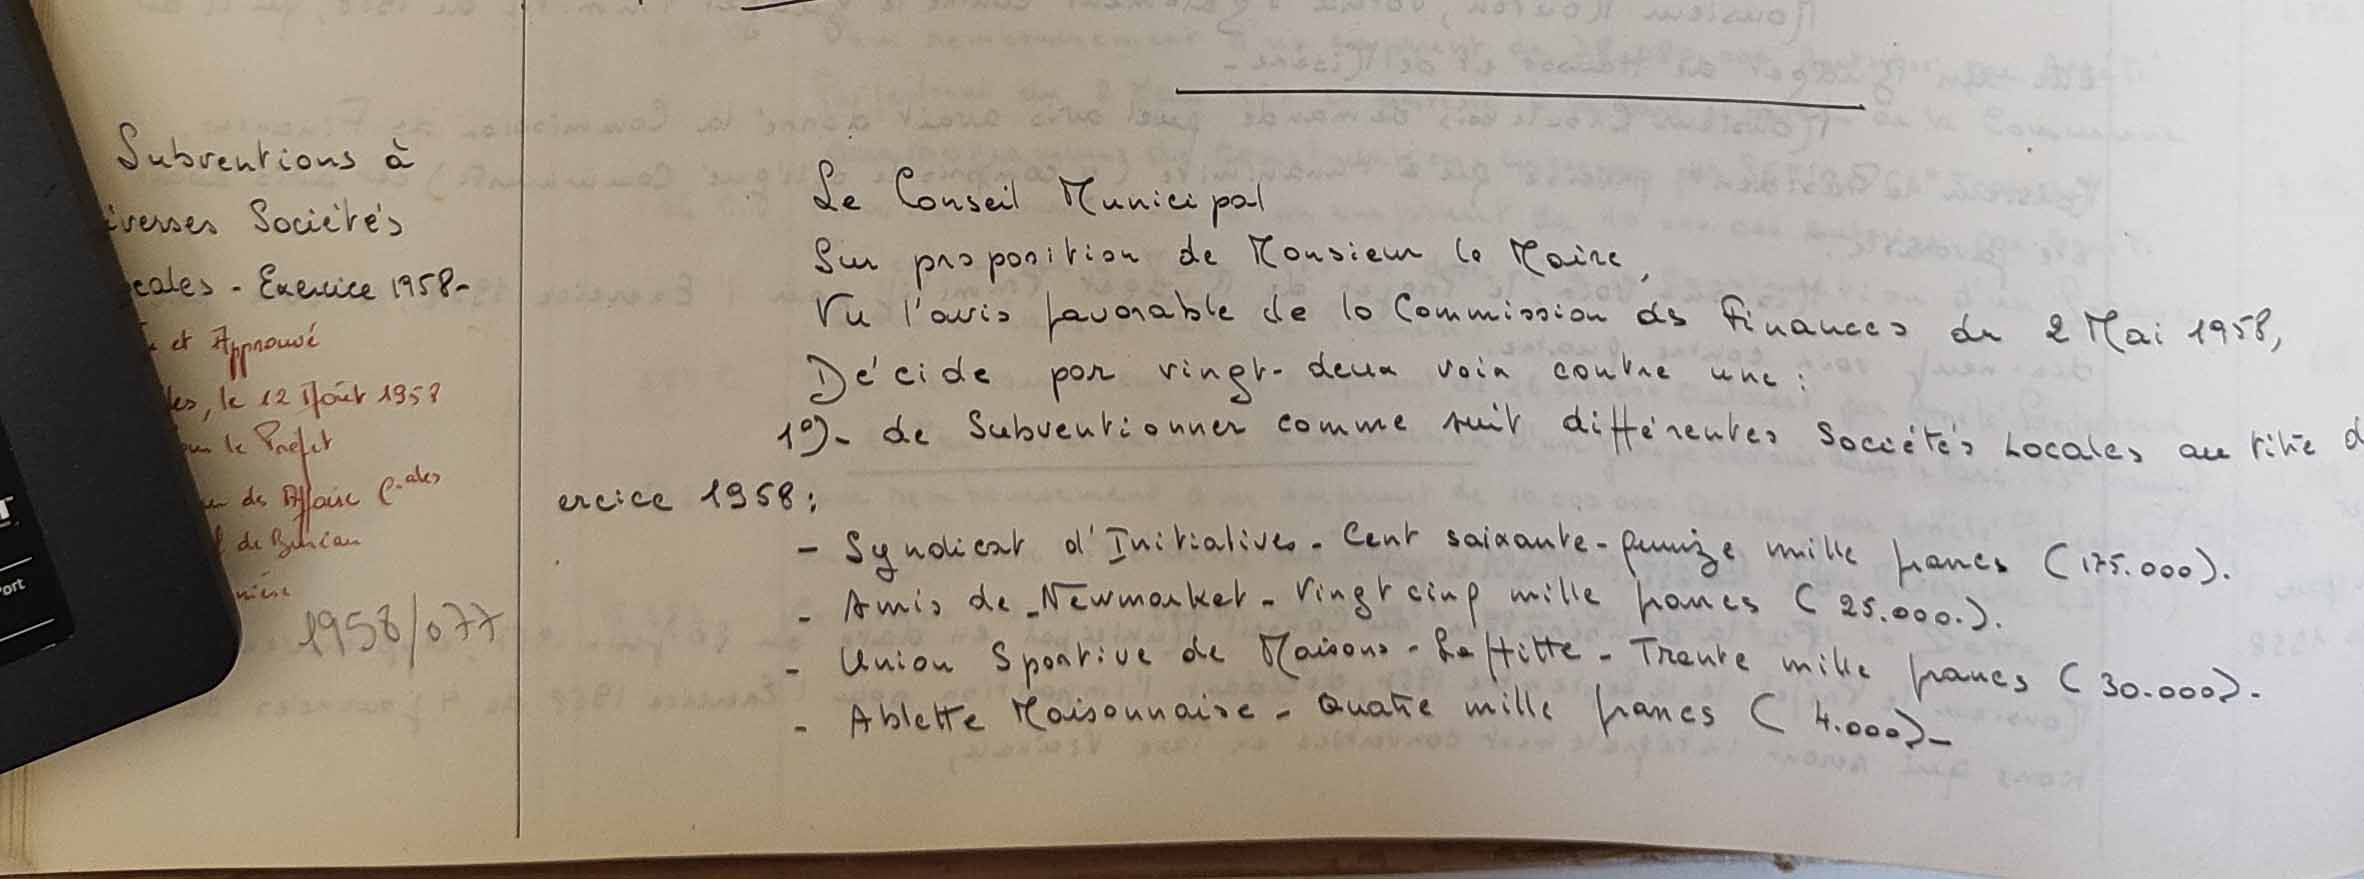 Subventions à
iverses Sociétés
cales - Exercice 1958-
et Approuvé
les, le 12 Août 1958
le Préfet
de Affaire C.ales
de Bureau
1958/077
Le Conseil Municipal
Sur proposition de Monsieur le Maire,
Vu l'avis favorable de la Commission des Finances du 2 Mai 1958,
Décide par vingt-deux voix contre une :
1º)- de Subventionner comme suit différentes Sociétés Locales au titre d
ercice 1958 :
- Syndicat d'Initiatives - Cent soixante-quinze mille francs (175.000).
- Amis de Newmarket - Vingt cinq mille francs (25.000.).
- Union Sportive de Maisons-Laffitte - Trente mille francs (30.000).
- Ablette Maisonnaise - Quatre mille francs (4.000)-
ort